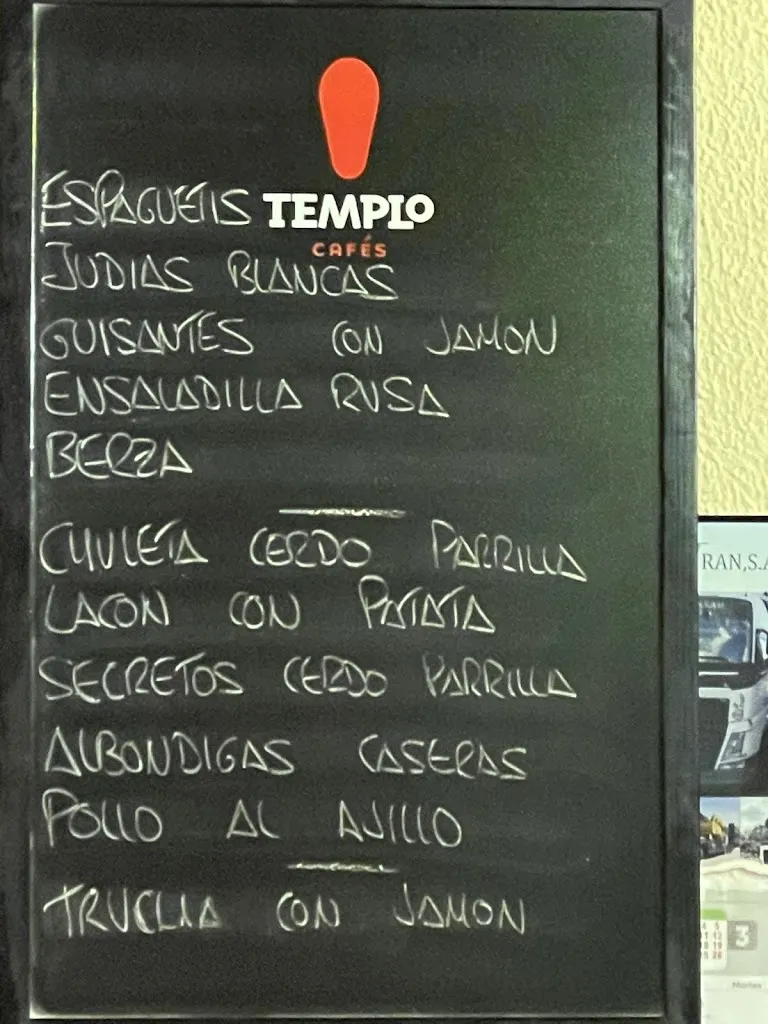 ESPAGUETIS TEMPLO
CAFÉS
JUDIAS BLANCAS
GUISANTES CON JAMON
ENSALADILLA RUSA
BERZA
CHULETA CERDO PARRILLA
LACON CON PATATA
SECRETOS CERDO PARRILLA
ALBONDIGAS CASERAS
POLLO AL AJILLO
TRUCHA CON JAMON
RAN,S.A
4 5
11 12
18 19
25 26
3
Martes